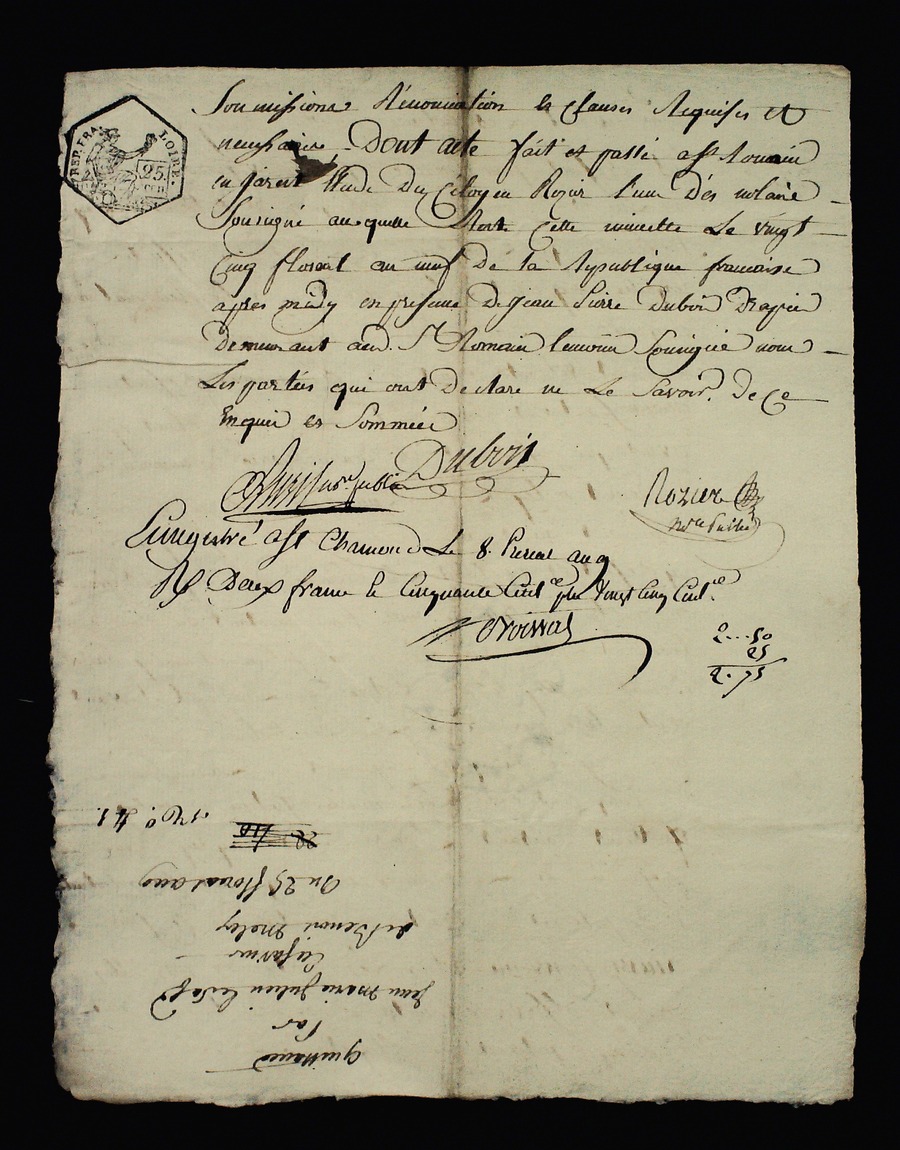 REP. FRA. LOIRE. 25. CEN
Soumissions Rénonciation es Clauses Requises et
nessaire Dont acte fait et passé a St Romain
en Jarest Etude Du Citoyen Rozier l'un Des notaire
Sousigné auquelle Reste Cette minutte Le vingt
Cinq floreal an neuf De la Republique francaise
apres midy en presence De jean Pierre Dubois
Demeurant aud. St Romain temoin Sousigné non
Les parties qui ont Declare ne Le Savoir, De Ce
Enquis et Sommée
Dubois
Rozier
nre Public
Enregistré a St Chamond Le 8. Prerial an 9
R Deux franc et Cinquante Centes plus Vingt Cinq Centes.
2...50
25
2.75
Quittance
Par
Jean Marie Julien
En faveur
de Benoit
Du 25 floreal an 9
No. 41